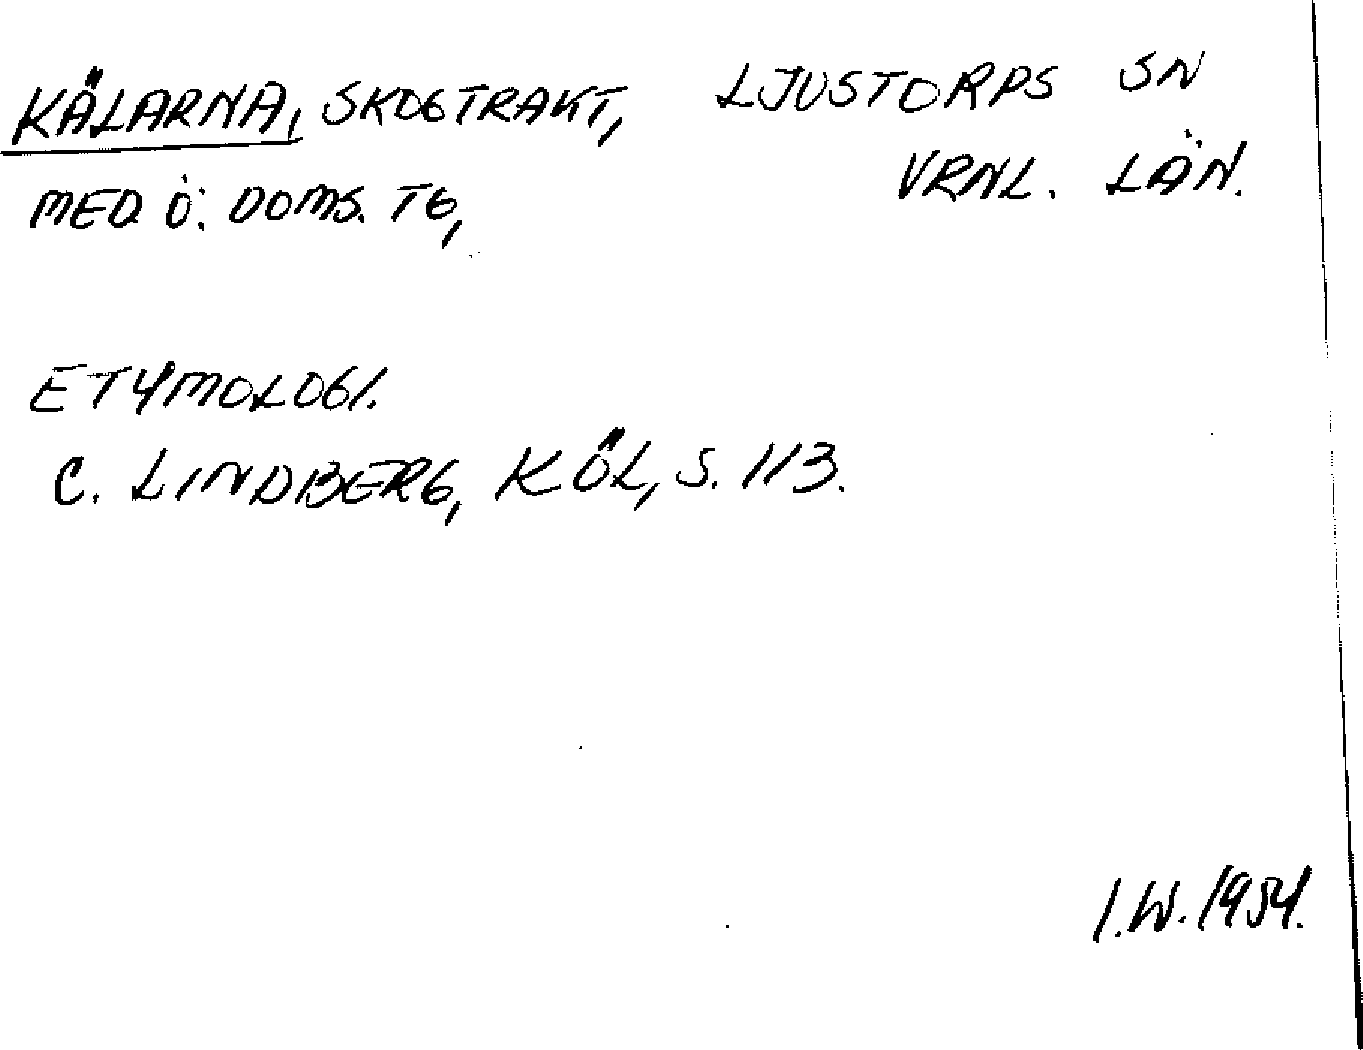 KÄLARNA, SKOGTRAKT, LJUSTORPS SN
MED. Ö. DOMS. TG, VRNL. LÄN.
ETYMOLOGI.
C. LINDBERG, KÖL, S. 113.
I.W. 1954.